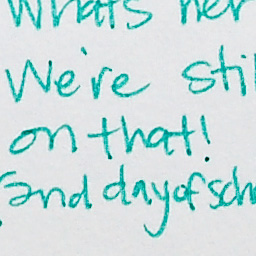 Whats her
We're sti
on that!
2nd day of sch